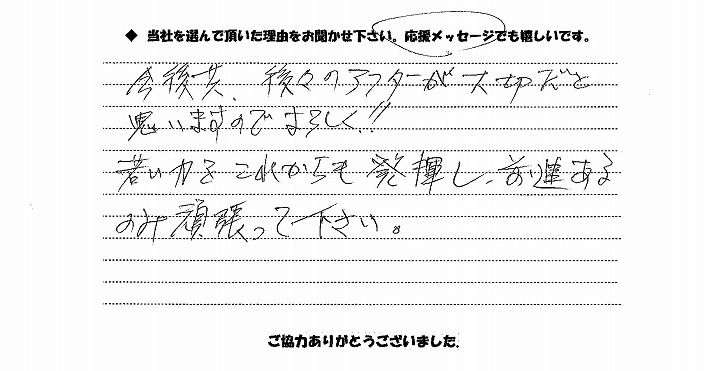 ◆ 当社を選んで頂いた理由をお聞かせ下さい。応援メッセージでも嬉しいです。
今後共、後々のアフターが大切だと
思いますのでよろしく!!
若い力をこれからも発揮し、前進ある
のみ頑張って下さい。
ご協力ありがとうございました.